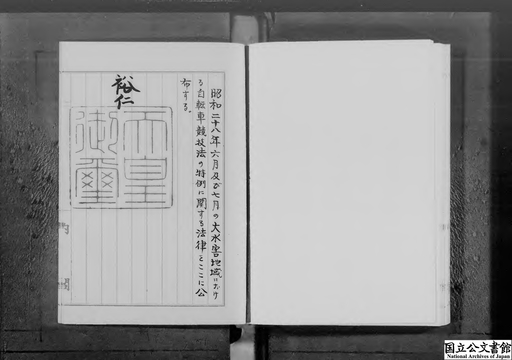 昭和二十八年六月及び七月の大水害地域におけ
る自転車競技法の特例に関する法律をここに公
布する。
裕仁
天皇
御璽
国立公文書館
National Archives of Japan